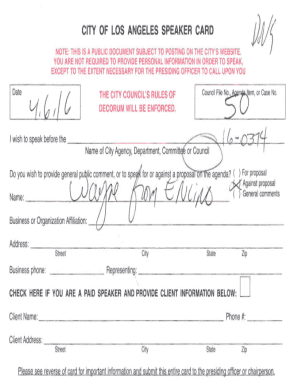 CITY OF LOS ANGELES SPEAKER CARD
DWG
NOTE: THIS IS A PUBLIC DOCUMENT SUBJECT TO POSTING ON THE CITY'S WEBSITE.
YOU ARE NOT REQUIRED TO PROVIDE PERSONAL INFORMATION IN ORDER TO SPEAK,
EXCEPT TO THE EXTENT NECESSARY FOR THE PRESIDING OFFICER TO CALL UPON YOU
Date
4.6.16
THE CITY COUNCIL'S RULES OF
DECORUM WILL BE ENFORCED.
Council File No., Agenda Item, or Case No.
50
16-0374
I wish to speak before the
Name of City Agency, Department, Committee or Council
Do you wish to provide general public comment, or to speak for or against a proposal on the agenda? ( ) For proposal
(X) Against proposal
( ) General comments
Name: Wayne from Encino
Business or Organization Affiliation:
Address:
Street City State Zip
Business phone: Representing:
CHECK HERE IF YOU ARE A PAID SPEAKER AND PROVIDE CLIENT INFORMATION BELOW:
Client Name: Phone #:
Client Address:
Street City State Zip
Please see reverse of card for important information and submit this entire card to the presiding officer or chairperson.